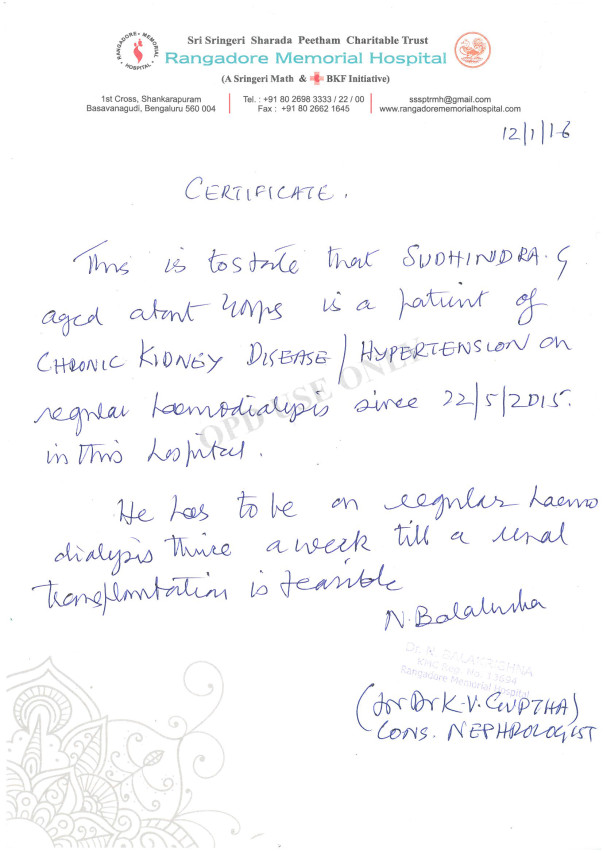 RANGADORE MEMORIAL HOSPITAL
Sri Sringeri Sharada Peetham Charitable Trust
Rangadore Memorial Hospital
(A Sringeri Math & BKF Initiative)
1st Cross, Shankarapuram
Basavanagudi, Bengaluru 560 004
Tel. : +91 80 2698 3333 / 22 / 00
Fax : +91 80 2662 1645
sssptrmh@gmail.com
www.rangadorememorialhospital.com
12/1/16
CERTIFICATE.
This is to state that SUDHINDRA. G
aged about 40yrs is a patient of
CHRONIC KIDNEY DISEASE / HYPERTENSION on
regular haemodialysis since 22/5/2015.
in this hospital.
OPD USE ONLY
He has to be on regular haemo
dialysis thrice a week till a renal
transplantation is feasible
N. Balakrisha
Dr. N. BALAKRISHNA
KMC Reg. No. 13694
Rangadore Memorial Hospital
(for Dr K. V. GUPTHA)
CONS. NEPHROLOGIST